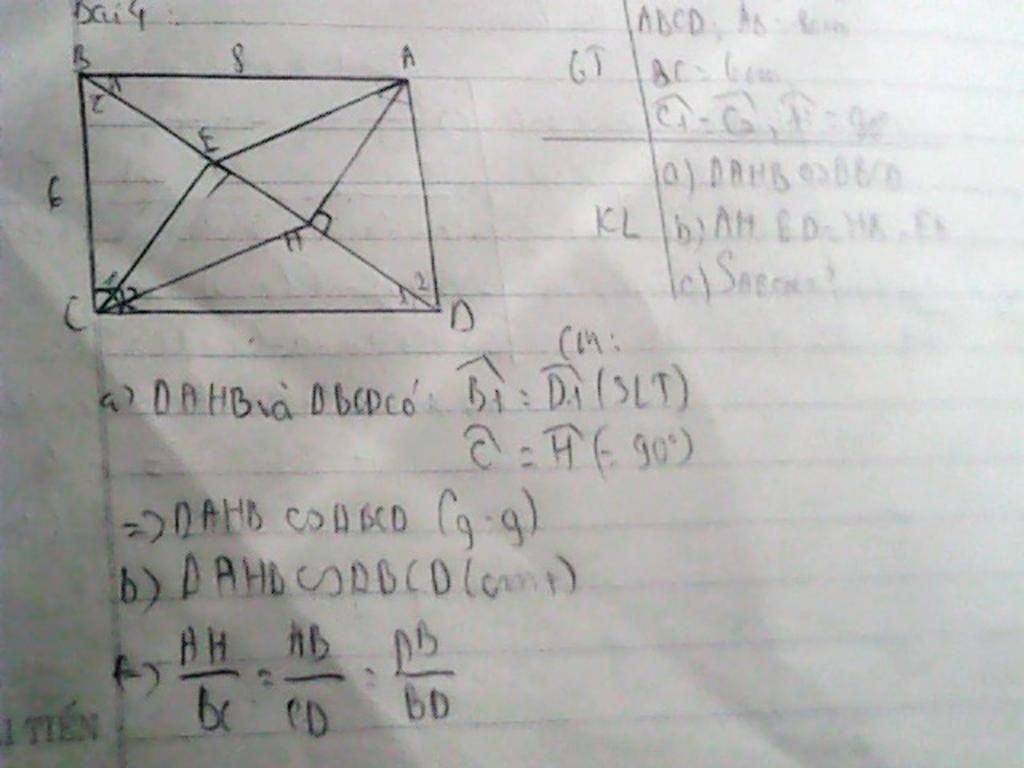 Bài 4:
B 8 A
1
2
E
6
H
1 2
1 2
C D
GT
ABCD; AB = 8cm
BC = 6cm
Ĉ1 = Ĉ2, Ĥ = 90°
KL
a) ΔAHB ∽ ΔBCD
b) AH. ED = HB. EB
c) S
CM:
a) ΔAHB và ΔBCD có: B̂1 = D̂1 (SLT)
Ĉ = Ĥ (= 90°)
=> ΔAHB ∽ ΔBCD (g.g)
b) ΔAHB ∽ ΔBCD (cmt)
=> AH/BC = AB/CD = AB/BD
I TIẾN